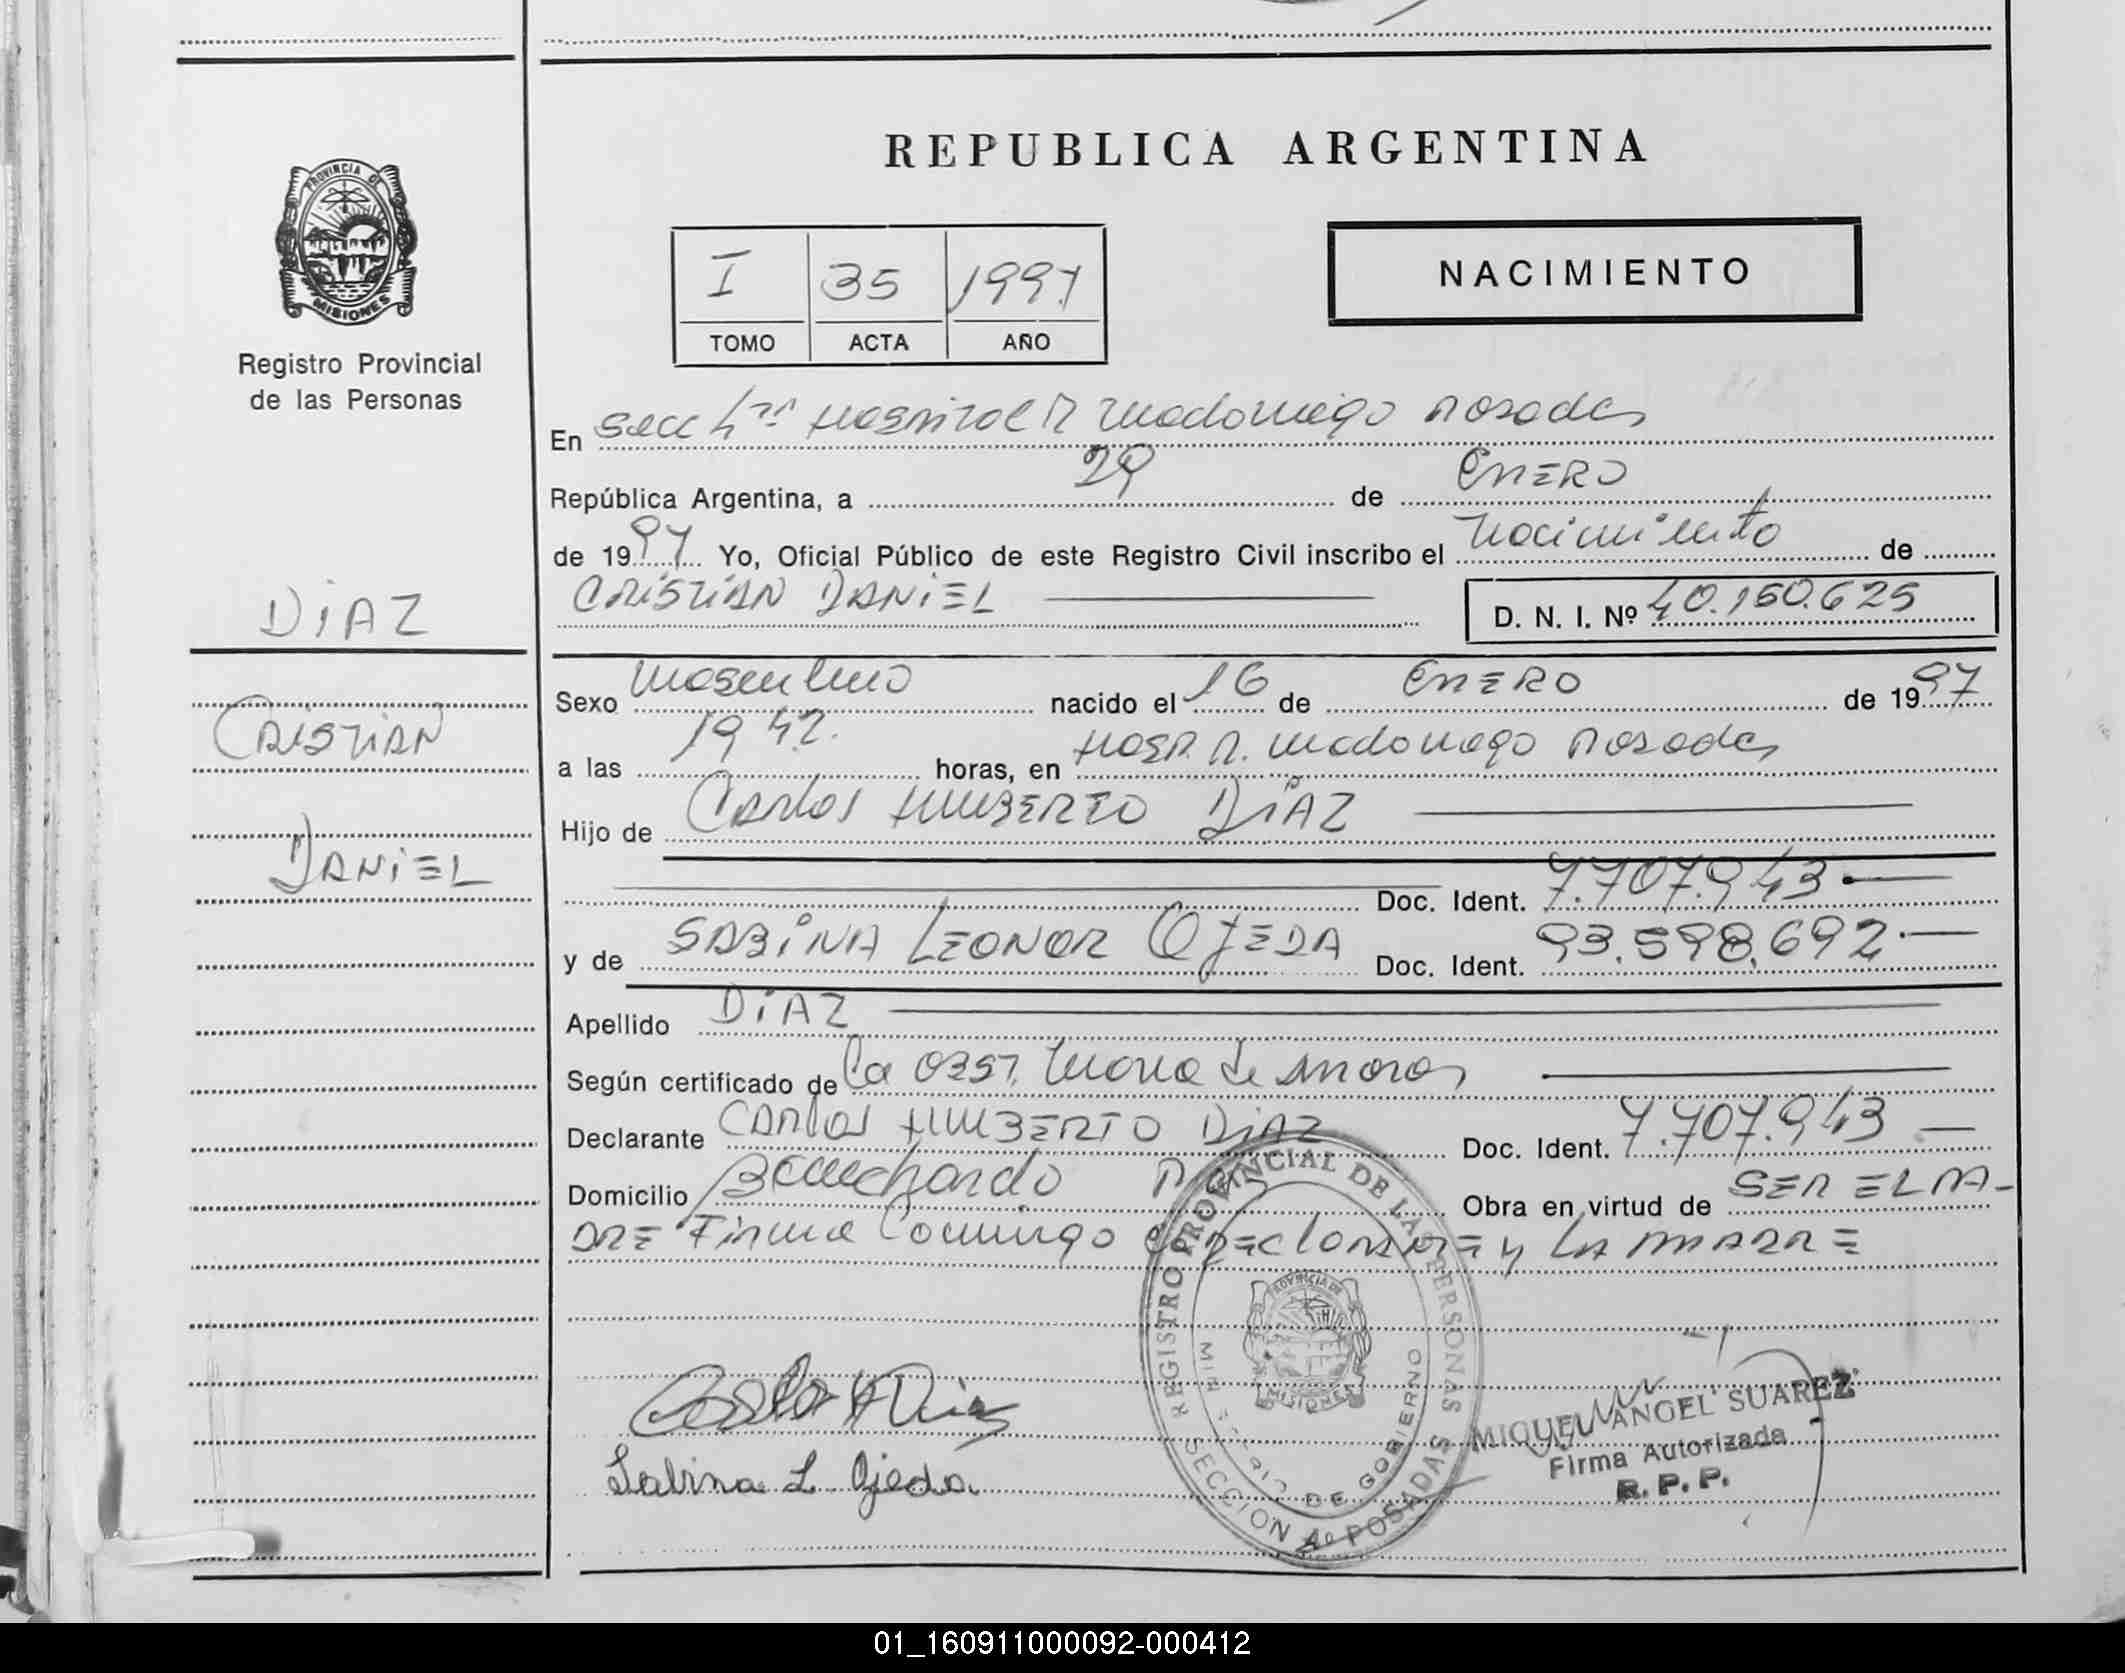 REPUBLICA ARGENTINA
PROVINCIA DE
MISIONES
Registro Provincial
de las Personas
I 35 1997
TOMO ACTA AÑO
NACIMIENTO
En Secc 4ta Hospital R Madariaga Posadas
República Argentina, a 29 de ENERO
de 1997 Yo, Oficial Público de este Registro Civil inscribo el Nacimiento de
CRISTIAN DANIEL D. N. I. Nº 40.160.625
DIAZ
CRISTIAN
DANIEL
Sexo Masculino nacido el 16 de ENERO de 1997
a las 19 42. horas, en Hosp. R. Madariaga Posadas
Hijo de Carlos HUMBERTO DIAZ
Doc. Ident. 7.707.943
y de SABINA LEONOR OJEDA Doc. Ident. 93.598.692
Apellido DIAZ
Según certificado de la OBST. Maria de
Declarante CARLOS HUMBERTO DIAZ Doc. Ident. 7.707.943
Domicilio Bouchardo Obra en virtud de SER EL PA-
DRE Firma Conmigo el DECLARANTE y LA MADRE
REGISTRO PROVINCIAL DE LAS PERSONAS
SECCION 4º POSADAS
DE GOBIERNO
PROVINCIA DE
MISIONES
Carlos H Diaz
Sabina L Ojeda
MIGUEL ANGEL SUAREZ
Firma Autorizada
R. P. P.
01_160911000092-000412